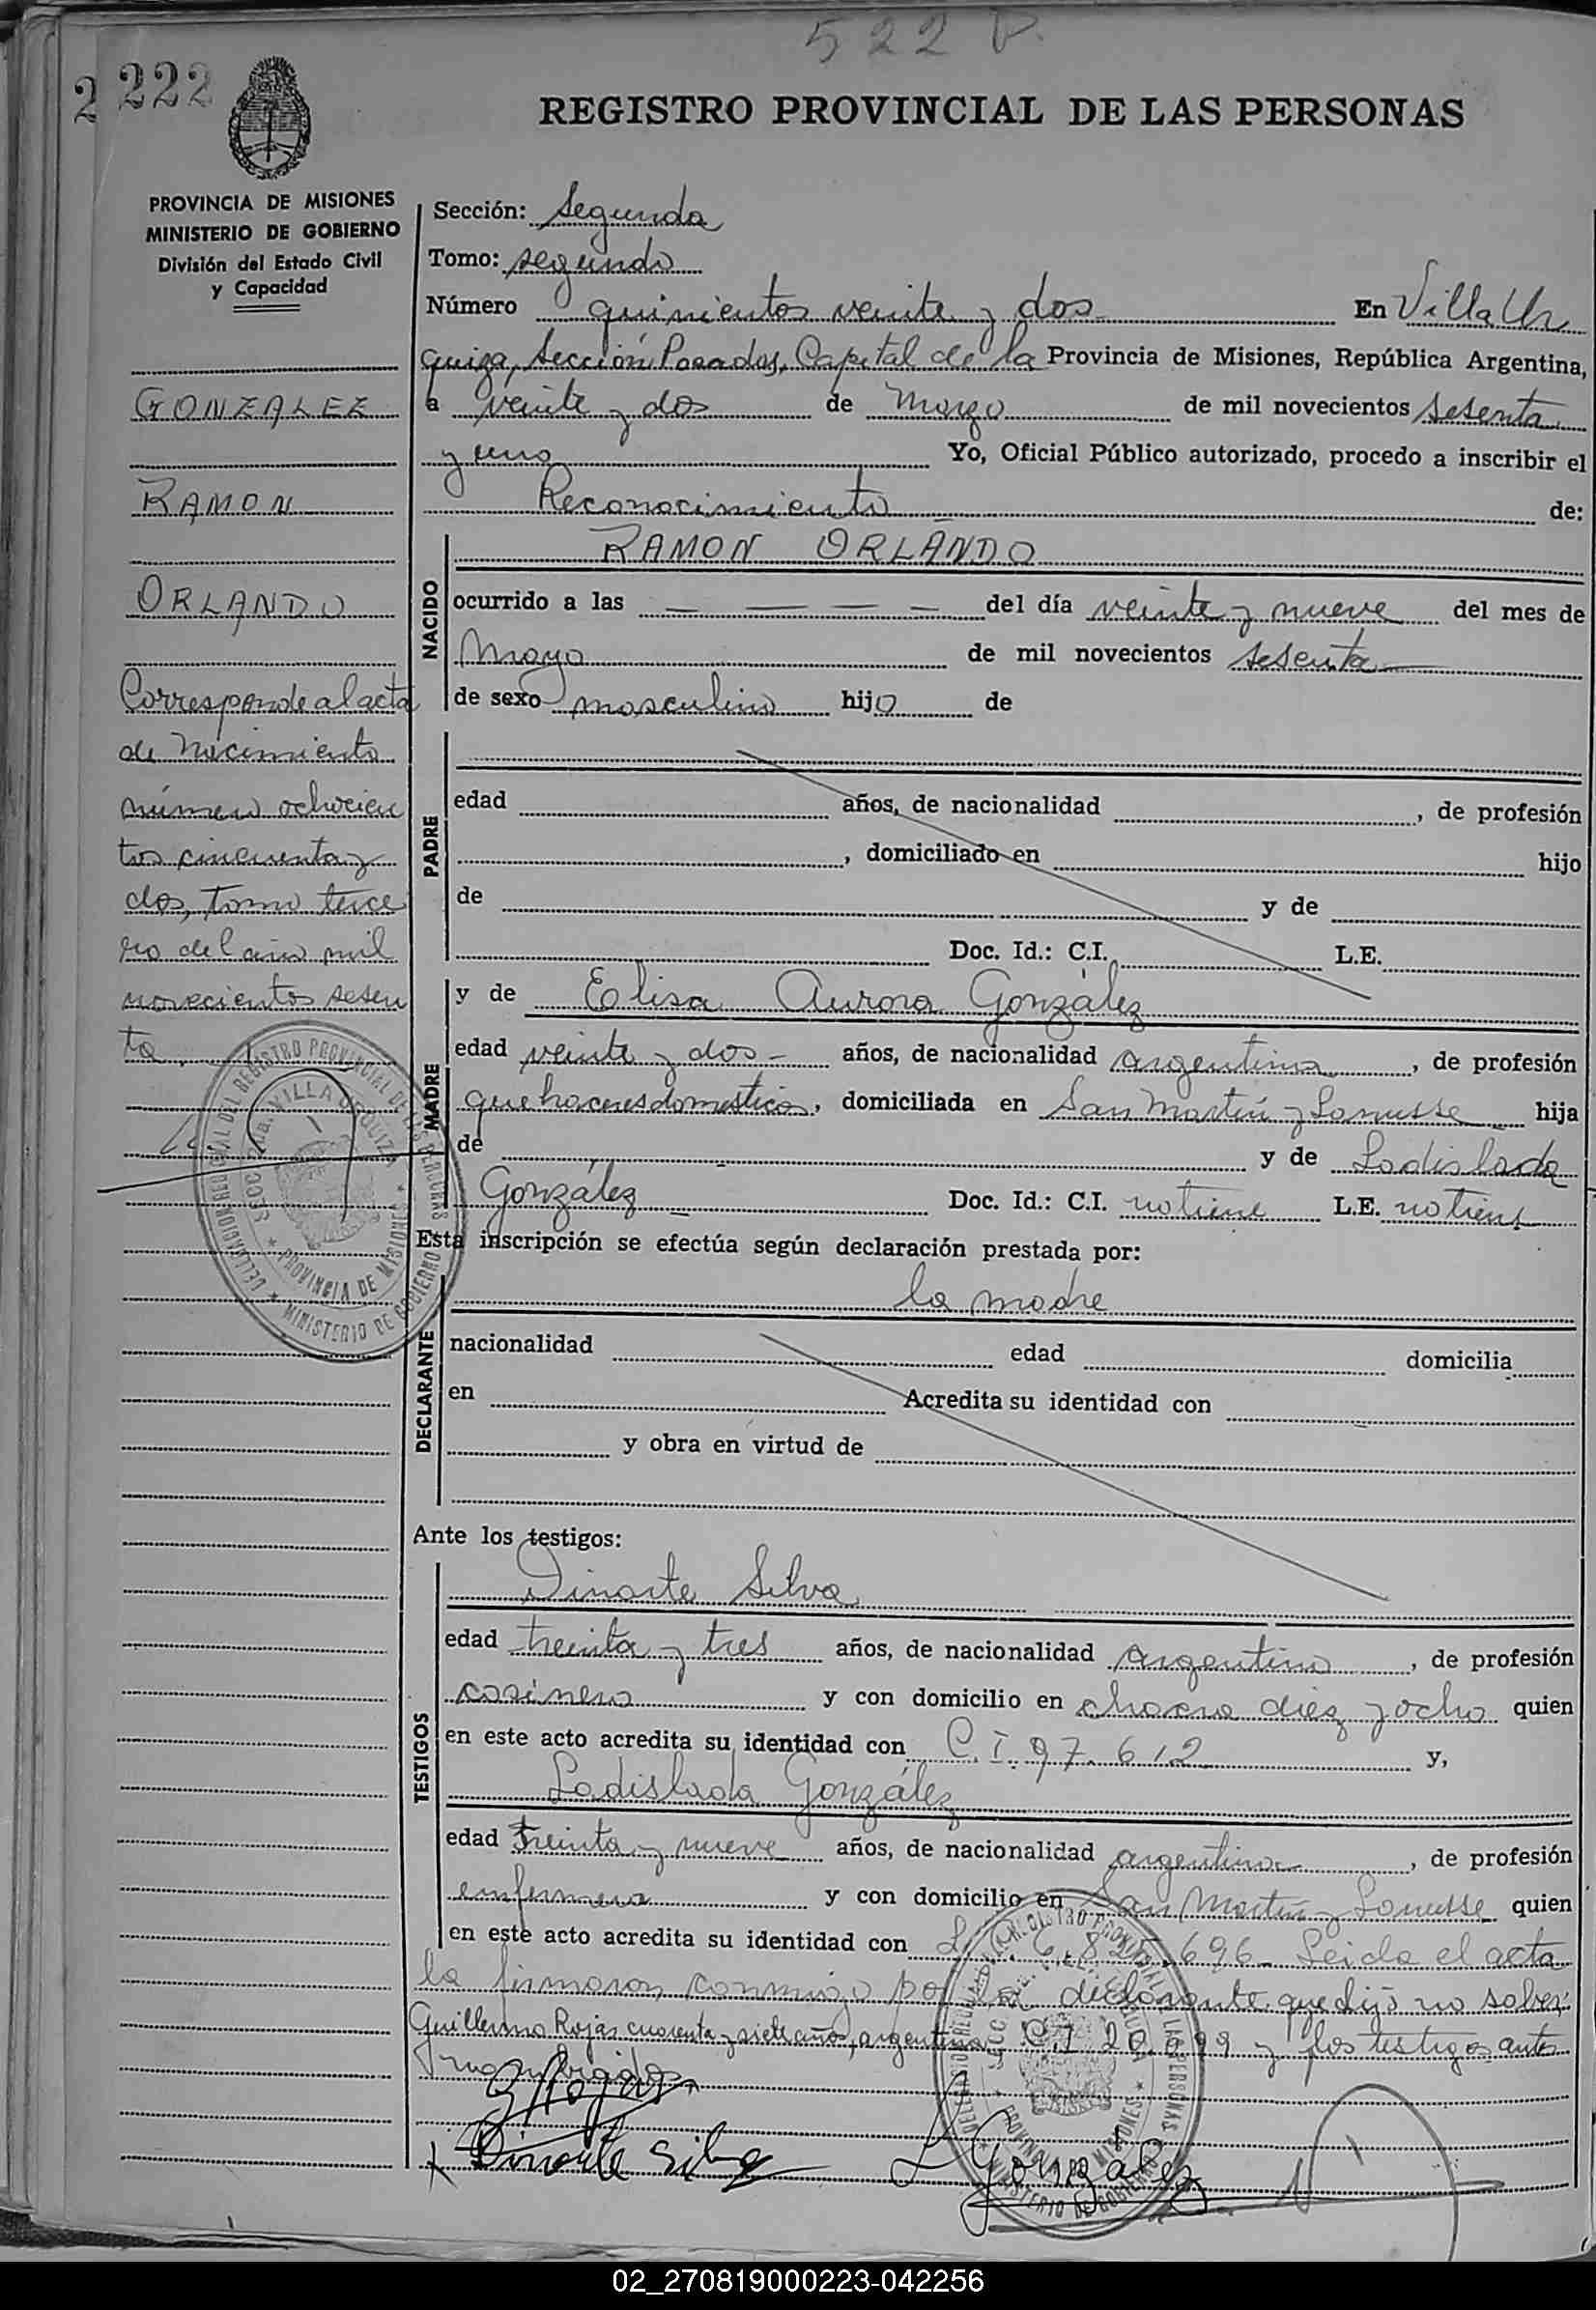 522 P.
2 222
REGISTRO PROVINCIAL DE LAS PERSONAS
PROVINCIA DE MISIONES
MINISTERIO DE GOBIERNO
División del Estado Civil
y Capacidad
GONZALEZ
RAMON
ORLANDO
Corresponde al acta
de Nacimiento
número ochocien
tos cincuenta y
dos, Tomo terce
ro del año mil
novecientos sesen
ta
Sección: Segunda
Tomo: segundo
Número quinientos veinte y dos En Villa Ur
quiza, Sección Posadas, Capital de la Provincia de Misiones, República Argentina,
a veinte y dos de Marzo de mil novecientos sesenta
y uno Yo, Oficial Público autorizado, procedo a inscribir el
Reconocimiento de:
NACIDO
RAMON ORLANDO
ocurrido a las — — — — del día veinte y nueve del mes de
Mayo de mil novecientos sesenta
de sexo masculino hijo de
PADRE
edad años, de nacionalidad , de profesión
, domiciliado en hijo
de y de
Doc. Id.: C.I. L.E.
MADRE
y de Elisa Aurora González
edad veinte y dos - años, de nacionalidad argentina, de profesión
quehaceres domesticos, domiciliada en San Martín y Lanusse hija
de y de Ladislada
González Doc. Id.: C.I. no tiene L.E. no tiene
Esta inscripción se efectúa según declaración prestada por:
DECLARANTE
la madre
nacionalidad edad domicilia
en Acredita su identidad con
y obra en virtud de
Ante los testigos:
TESTIGOS
Dinarte Silva
edad treinta y tres años, de nacionalidad Argentino, de profesión
cosinero y con domicilio en chacra diez y ocho quien
en este acto acredita su identidad con C.I. 97.612 y,
Ladislada González
edad treinta y nueve años, de nacionalidad argentina, de profesión
enfermera y con domicilio en San Martín y Lanusse quien
en este acto acredita su identidad con 6.825.696 Leida el acta
la firmaron conmigo por la declarante que dijo no saber:
Guillermo Rojas cuarenta y siete años, argentino C.I. 20.699 y los testigos antes
Dinarte Silva
L Gonzalez
DELEGACION REGIONAL DEL REGISTRO PROVINCIAL DE LAS PERSONAS
SECC. 2da. VILLA URQUIZA
PROVINCIA DE MISIONES
MINISTERIO DE GOBIERNO
02_270819000223-042256